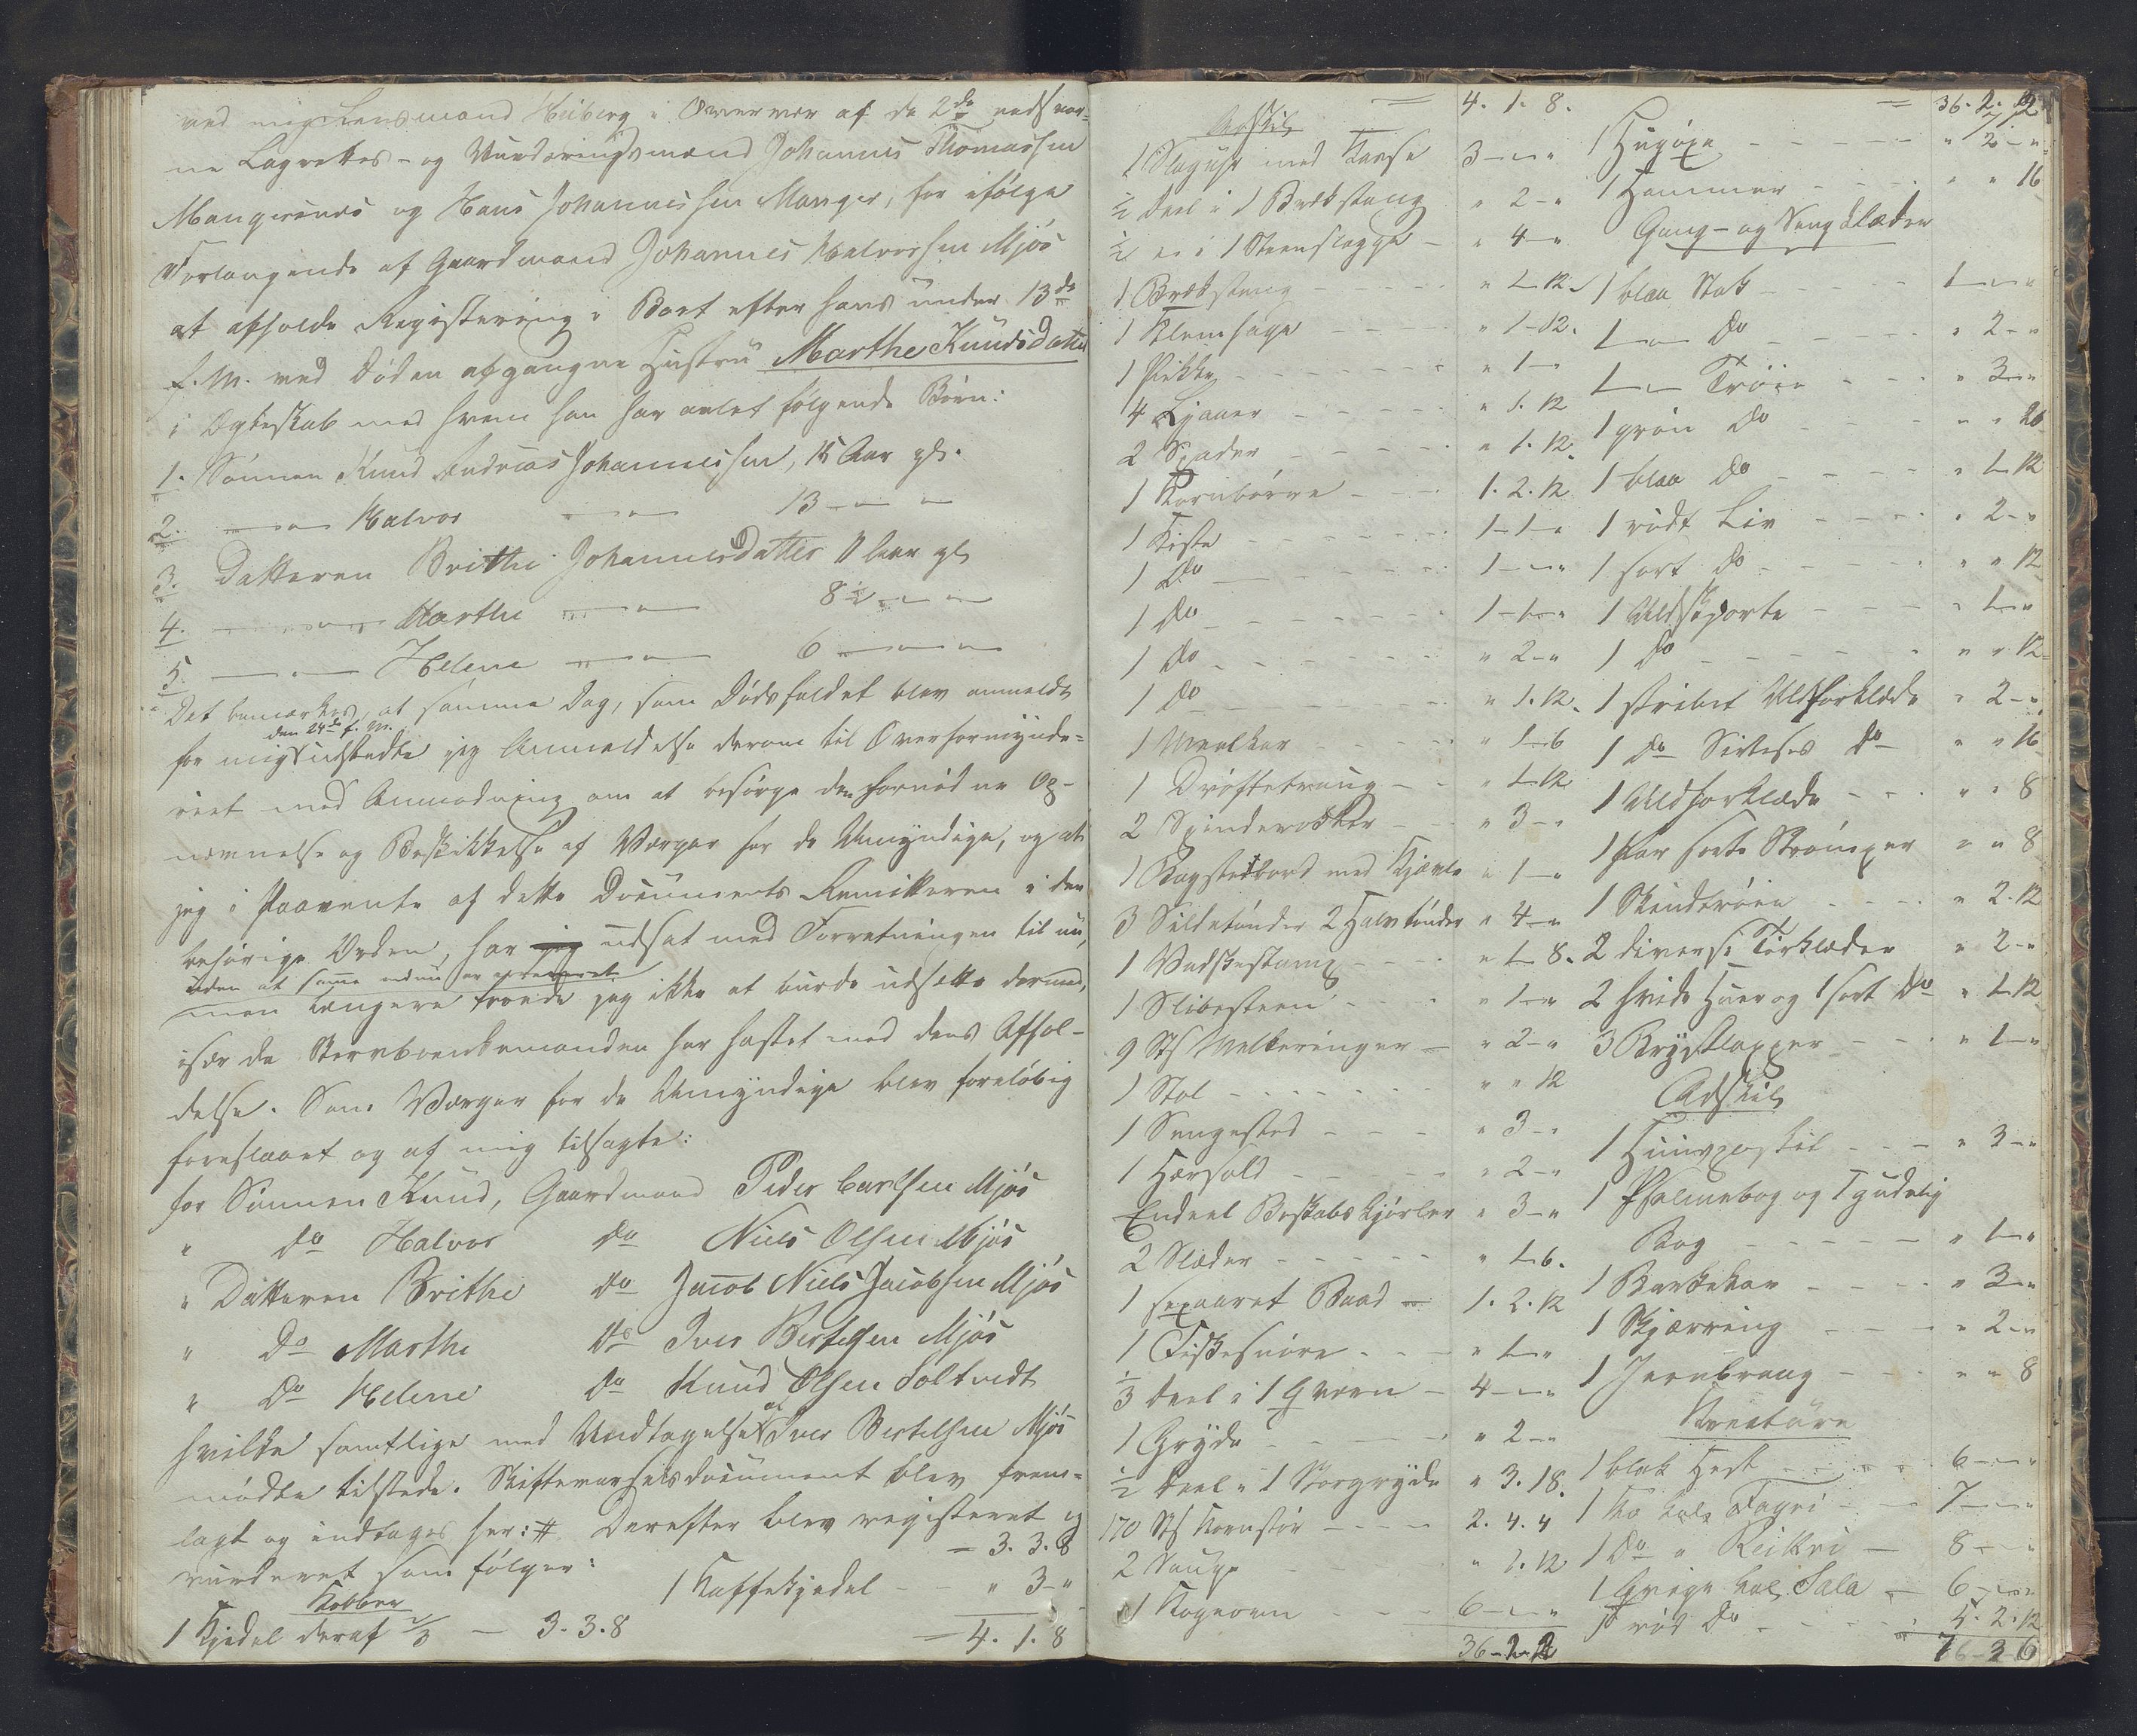 ved mig Lensmand Heiberg i Overvær af de 2de nedskrev-
ne Lagrettes- og Vurderingsmænd Johannes Thomassen
Mangersnes og Hans Johannessen Manger, for ifølge
Forlangende af Gaardmand Johannes Halvorsen Mjøs
at afholde Registrering i Boet efter hans under 13de
f. M. ved Døden afgangne Hustru Marthe Knudsdatter
i Ægteskab med hvem han har avlet følgende Børn:
1. Sønnen Knud Andreas Johannessen, 15 Aar gl.
2. —"— Halvor —"— 13 —"— —
3. Datteren Brithe Johannesdatter 11 Aar gl
4. —"— Marthe —"— 8½ —"—
5. —"— Helene —"— 6 —"—
Det bemærkes, at samme Dag, som Dødsfaldet blev anmeldt
den 24de f. M.
for mig udstedte jeg Anmeldelse derom til Overformynde-
riet med Anmodning om at besørge den fornødne Op-
nævnelse og Beskikkelse af Værger for de Umyndige, og at
jeg i Paavente af dette Documents Remitteren i den
behørige Orden, har jeg udsat med Forretningen til nu,
uden at samme endnu er
men længere troede jeg ikke at burde udsætte dermed,
især da Stervboenkemanden har hastet med dens Afhol-
delse. Som Værger for de Umyndige blev foreløbig
foreslaaet og af mig tilsagte:
for Sønnen Knud, Gaardmand Peder Carlsen Mjøs
" do Halvor do Niels Olsen Mjøs
" Datteren Brithe do Jacob Niels Jacobsen Mjøs
" Do Marthe do Iver Bertelsen Mjøs
" Do Helene do Knud Olsen Soltvedt
hvilke samtlige med Undtagelse af Iver Bertelsen Mjøs
mødte tilstede. Skiftevarselsdocument blev frem-
lagt og indtages her: # Derefter blev registreret og
vurderet som følger:
= 3. 3. 8
Kobber
1 Kaffekjedel - - " 3-"
1 Kjedel deraf 2/3 — 3. 3. 8
= 4. 1. 8
Adskil = 4. 1. 8.
1 med 3-"-"
½ Deel i 1 Brækstang " 2-"
½ " i 1 Steenslegge - " 4-"
1 Brækstang - - " 1-12.
1 - - " 1-12.
1 Hakke - - " 1-"
4 Ljaaer - - " 1. 12
2 Spader - - " 1. 12.
1 Kornbørre - - 1. 2. 12
1 Kiste - - 1-1-"
1 Do - - 1-"-"
1 do - - 1-"-"
1 do - - " 2-"
1 do - - " 1. 12.
1 - - " 1-6
1 Drøftetraug - - " 1-12
2 Spinderokker - - " 3-"
1 Bagstebord med Kjævle " 1-"
3 Sildetønder 2 Halvtønder " 4-"
1 Vadskestamp - - " 1-8.
1 Slibesteen - - " 1-"
9 St Melkeringer - " 2-"
1 Stol - - " " 12
1 Sengested - - " 3-"
1 Hærsold - - " 2-"
Endeel Boskabs Kjørler " 3-"
2 Slæder - - " 1-6.
1 sexaaret Baad - 1. 2. 12
1 Fiskesnøre - - " 1-"
1/3 Deel i 1 Qværn - 4-"-"
1 Gryde - - " 2-"
½ Deel i 1 Storgryde " 3. 18.
170 St Kornstør - - 2. 4. 4
2 Sauge - - " 1. 12
1 Kogeovn - - 6-"-"
36-
= 36. 2.
1 Hugøxe - - " 2-"
1 Hammer - - " " 16
Gang- og Sengklæder
1 blaa Stak - - 1-"-"
1 — do - - " 2-"
1 — Trøie - - " 3-"
1 grøn do - - " " 20
1 blaa do - - " 1-12
1 rødt Liv - - " 2-"
1 sort do - - " " 12
1 Uldskjorte - - " 1-"
1 do - - " " 12
1 stribet Uldforklæde " 2-"
1 do Sirtses do " " 16
1 Uldforklæde - - " " 8
1 Par sorte Strømper " " 8
1 Skindtrøie - - " 2. 12
2 diverse Tørklæder " 2-"
2 hvide Huer og 1 sort do " 1-12
3 Brystlapper - - " 1-"
Adskil
1 - - " 3-"
1 Psalmebog og 1 gudelig
Bog - - " 1-"
1 Barkekar - - " 3-"
1 Skjærring - - " 2-"
1 - - " " 8
Kreature
1 blak Hest - - 6-"-"
1 Ko kal. Fagri - - 7-"-"
1 Do " Reikri — 8-"-"
1 Qvige kal. Sala - 6-"-"
1 rød do - - 5. 2. 12